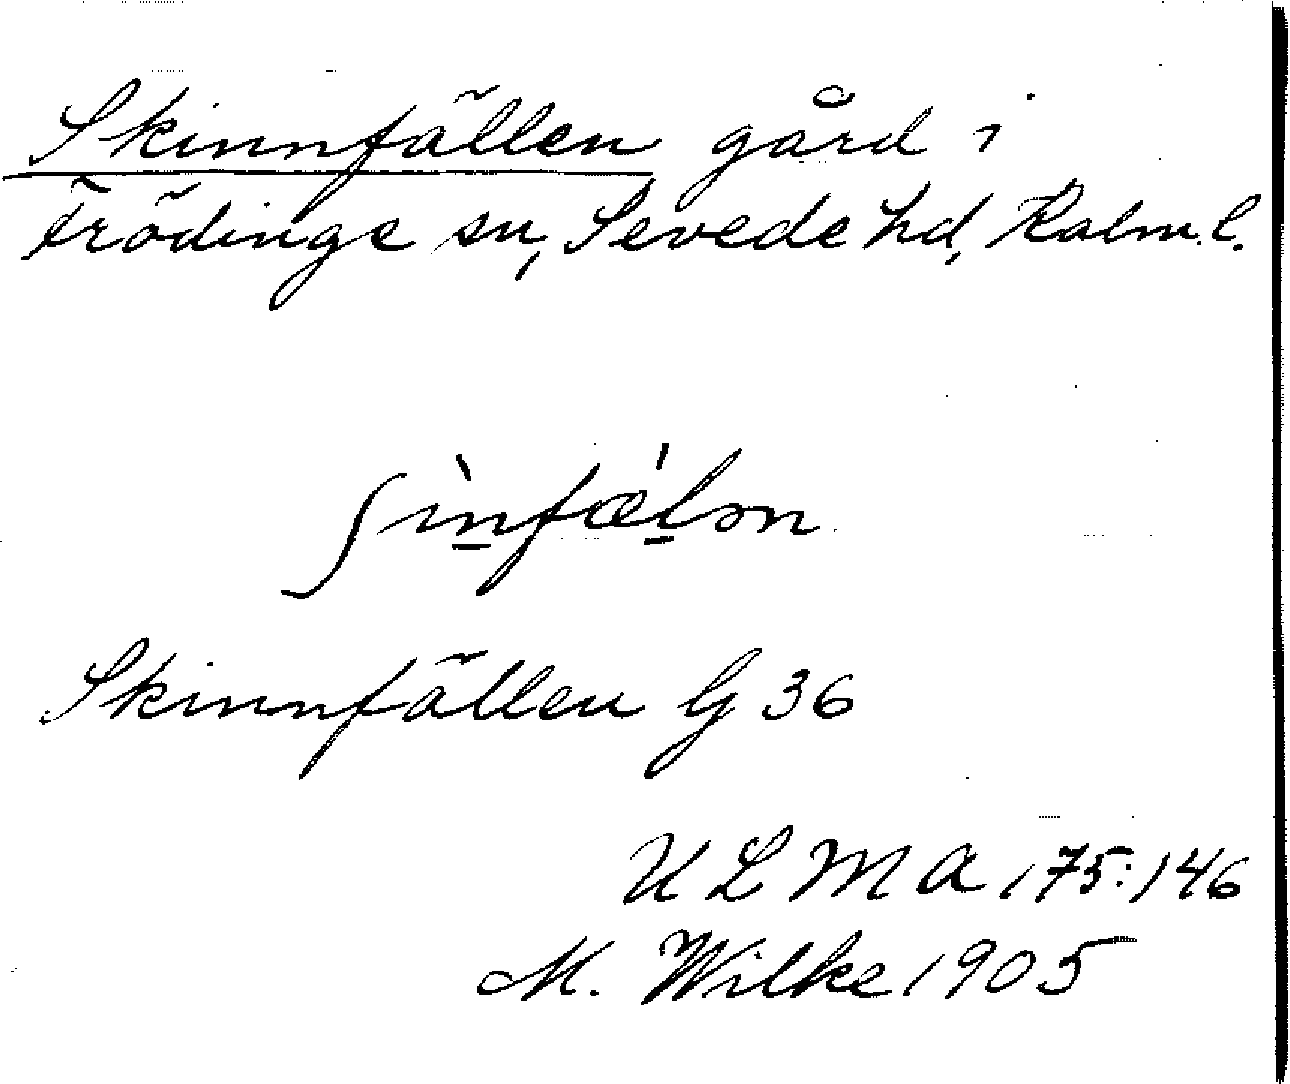 Skinnfällen gård i
Frödinge sn, Sevede hd, Kalm. l.
ʃìn̲fæ̍l̲ən
Skinnfällen G 36
ULMA 175:146
M. Wilke 1905